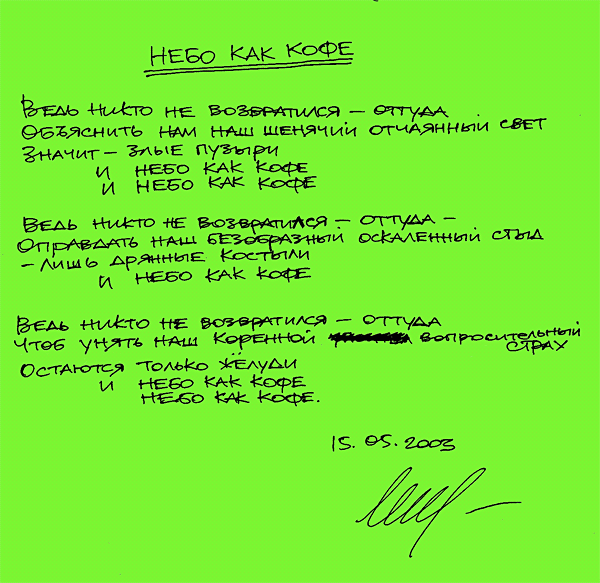 НЕБО КАК КОФЕ
ВЕДЬ НИКТО НЕ ВОЗВРАТИЛСЯ – ОТТУДА
ОБЪЯСНИТЬ НАМ НАШ ЩЕНЯЧИЙ ОТЧАЯННЫЙ СВЕТ
ЗНАЧИТ – ЗЛЫЕ ПУЗЫРИ
И НЕБО КАК КОФЕ
И НЕБО КАК КОФЕ
ВЕДЬ НИКТО НЕ ВОЗВРАТИЛСЯ – ОТТУДА –
ОПРАВДАТЬ НАШ БЕЗОБРАЗНЫЙ ОСКАЛЕННЫЙ СТЫД
– ЛИШЬ ДРЯННЫЕ КОСТЫЛИ
И НЕБО КАК КОФЕ
ВЕДЬ НИКТО НЕ ВОЗВРАТИЛСЯ – ОТТУДА
ЧТОБ УНЯТЬ НАШ КОРЕННОЙ ВОПРОСИТЕЛЬНЫЙ
СТРАХ
ОСТАЮТСЯ ТОЛЬКО ЖЁЛУДИ
И НЕБО КАК КОФЕ
НЕБО КАК КОФЕ.
15.05.2003